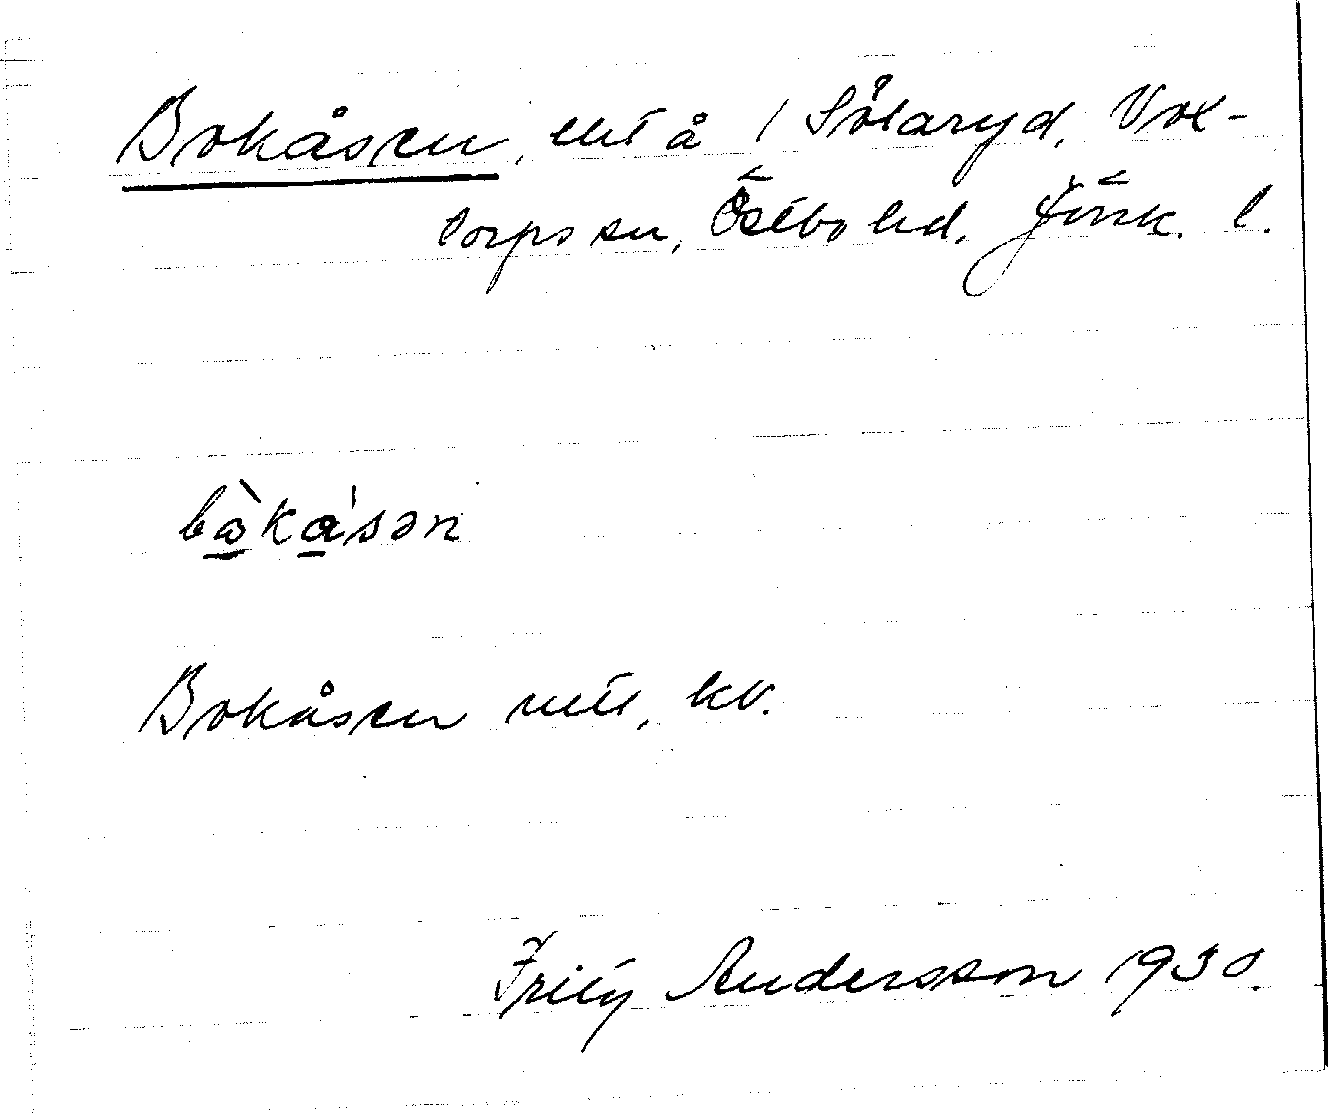 Bokåsen, utt å / Sötaryd, Vox-
torps sn, Östbo hd. Jönk. l.
bo̲̊̀kǻ̲sən
Bokåsen utt, kv.
Fritz Andersson 1930.